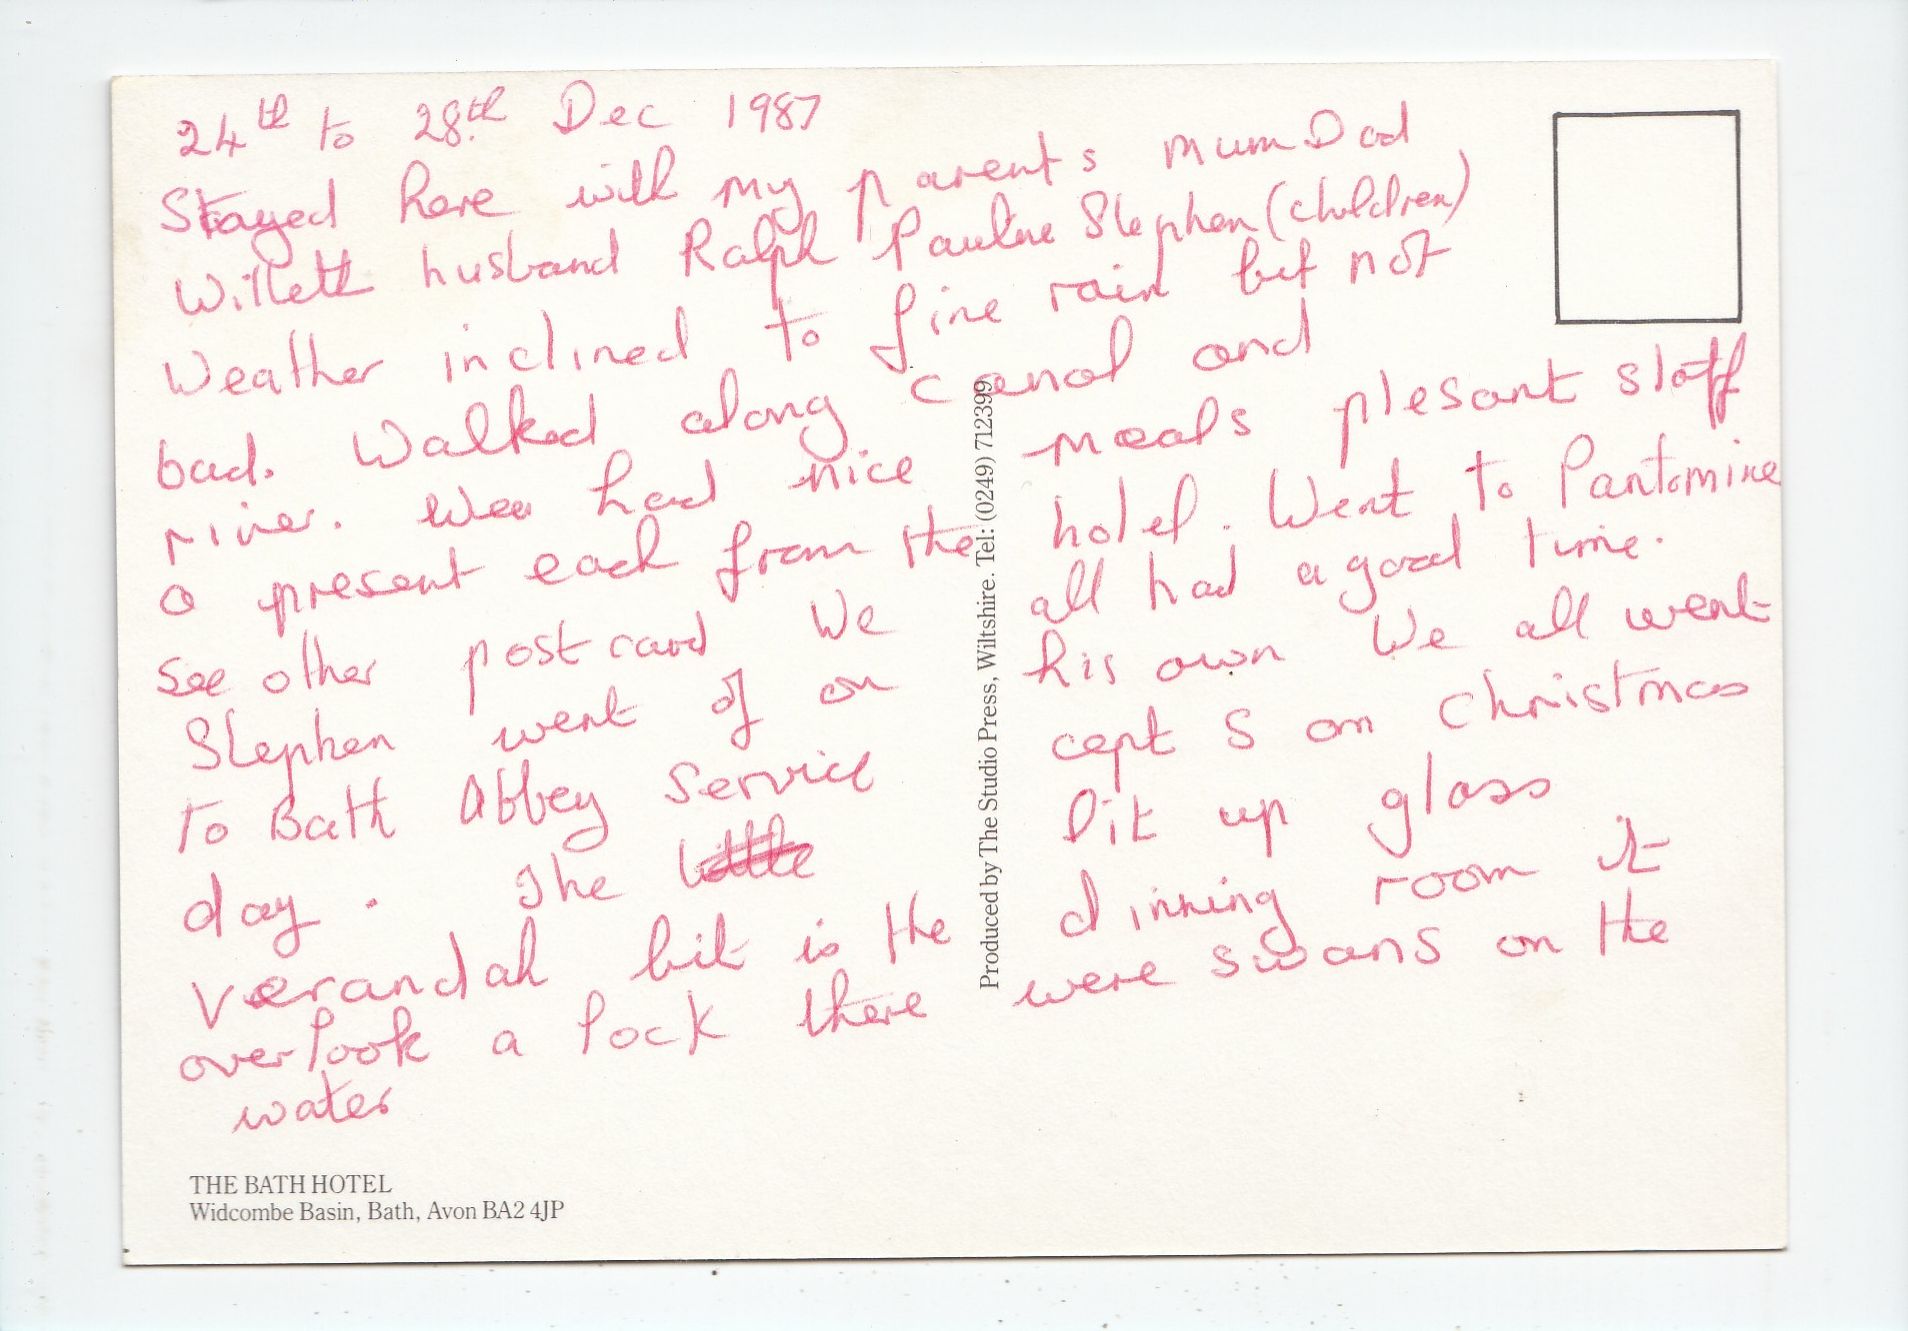 24th to 28th Dec 1987
Stayed here with my parents Mum Dad
Willett husband Ralph Pauline Stephen (children)
Weather inclined to fine rain but not
bad. Walked along canal and
river. Wee had nice meals plesant staff
a present each from the hotel. Went to Pantomine
see other post card We all had a good time.
Stephen went of on his own We all went
to Bath Abbey Service cept S on Christmas
day. The little lit up glass
verandah bit is the dinning room it
overlook a lock there were swans on the
water
THE BATH HOTEL
Widcombe Basin, Bath, Avon BA2 4JP
Produced by The Studio Press, Wiltshire. Tel: (0249) 712399